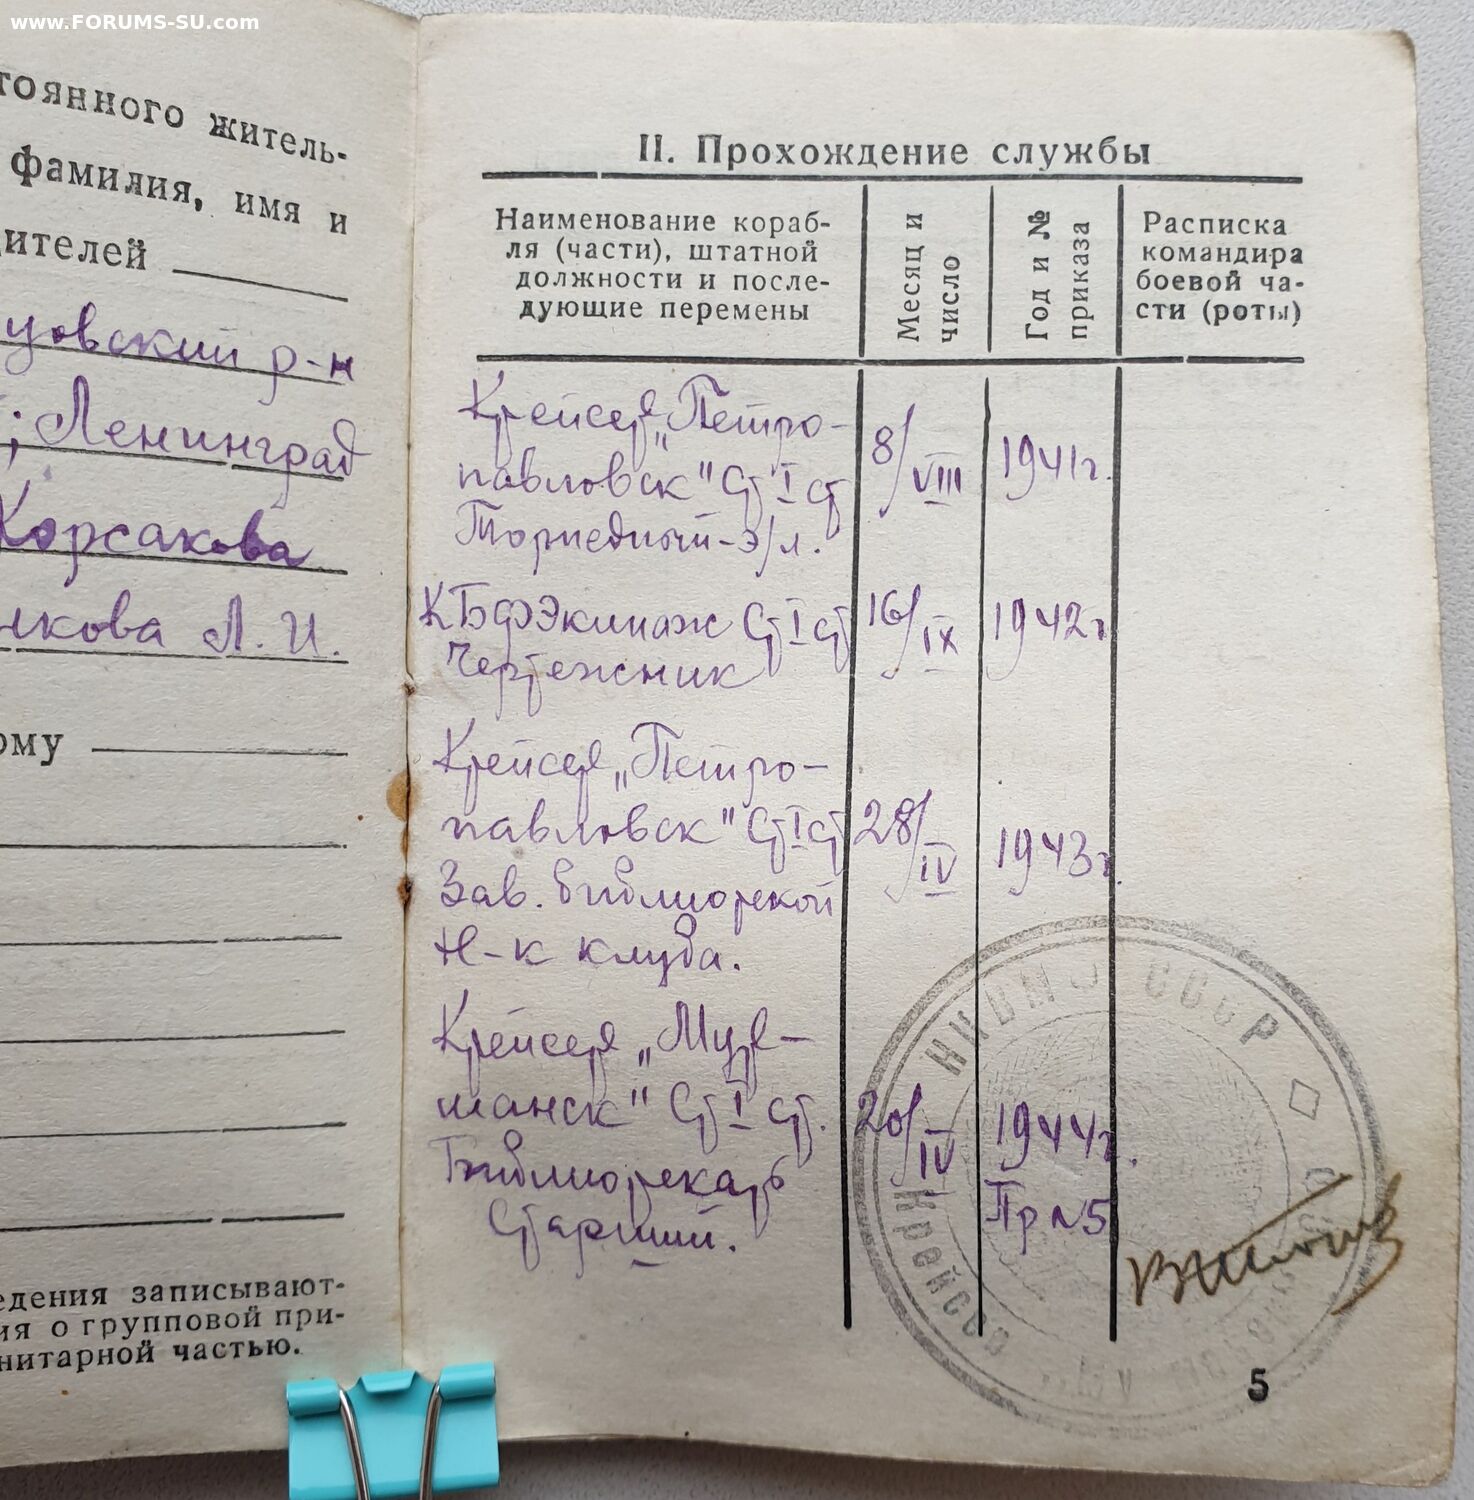 www.FORUMS-SU.com
тоянного житель-
фамилия, имя и
дителей
цовский р-н
; Ленинград
Корсакова
лкова Л. И.
ому
едения записывают-
ия о групповой при-
нитарной частью.
II. Прохождение службы
Наименование кораб-
ля (части), штатной
должности и после-
дующие перемены
Месяц и
число
Год и №
приказа
Расписка
командира
боевой ча-
сти (роты)
Крейсер „Петро-
павловск" Ст I ст
Торпедный-э/л.
8/VIII
1941г.
КБФ Экипаж Ст I ст
Чертежник
16/IX
1942г
Крейсер „Петро-
павловск" Ст I ст
Зав. библиотекой
Н-к клуба.
28/IV
1943г.
Крейсер „Мур-
манск" Ст I ст.
Библиотекарь
Старший.
20/IV
1944г.
Пр №5
НКВМФ СССР
Крейсер
5